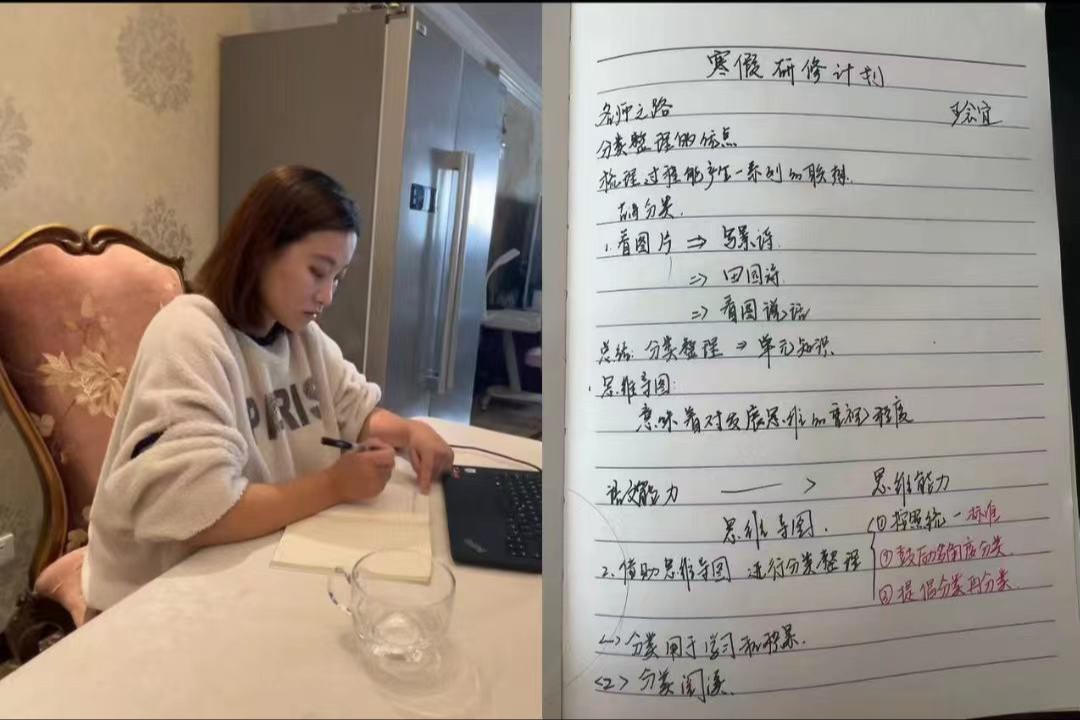 PARIS
ThinkPad
寒假研修计划
名师之路
分类整理的优点
梳理过程能产生一系列的联想.
分类.
1.看图片 ⇒ 写景诗.
⇒ 田园诗.
⇒ 看图说话
总结: 分类整理 ⇒ 单元知识.
思维导图:
意味着对发展思维的重视程度
语文能力 ——> 思维能力
思维导图.
①按照统一标准
2.借助思维导图 进行分类整理
②鼓励多角度分类.
③提倡分类再分类.
<1>分类用于学习和积累.
<2>分类阅读.